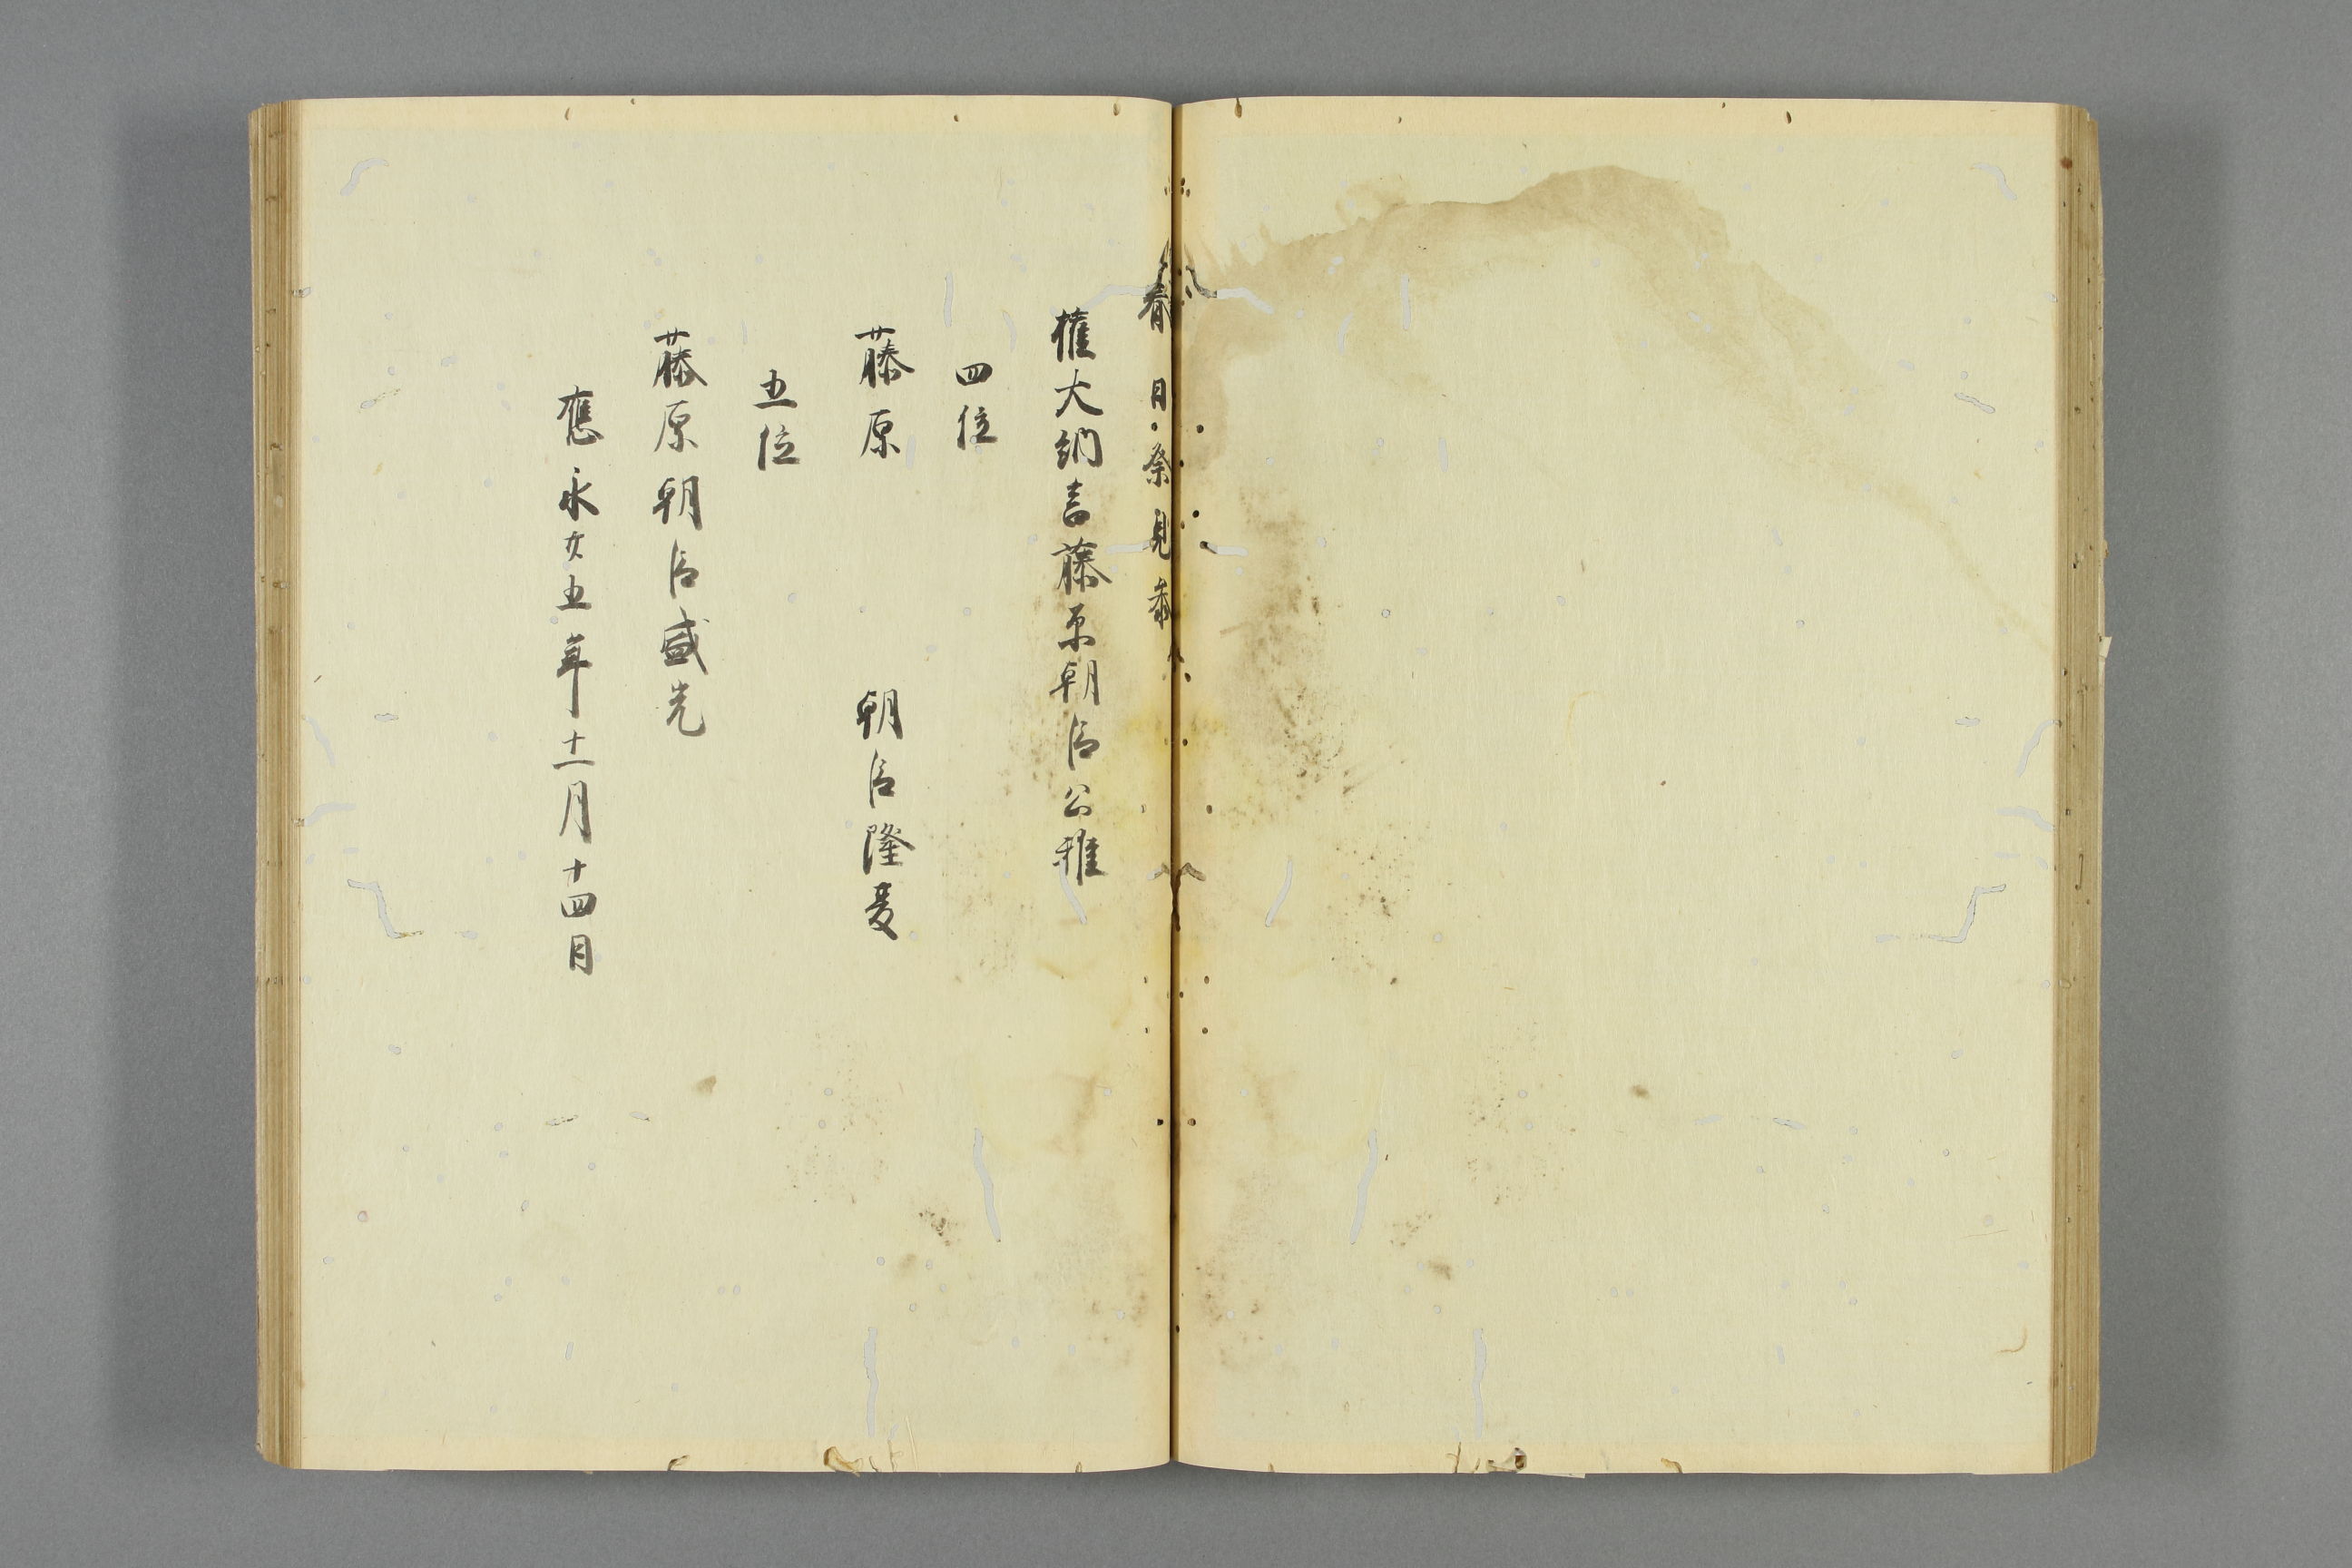 春日祭見参
権大納言藤原朝臣公雅
四位
藤原 朝臣隆夏
五位
藤原朝臣盛光
應永廿五年十一月十四日